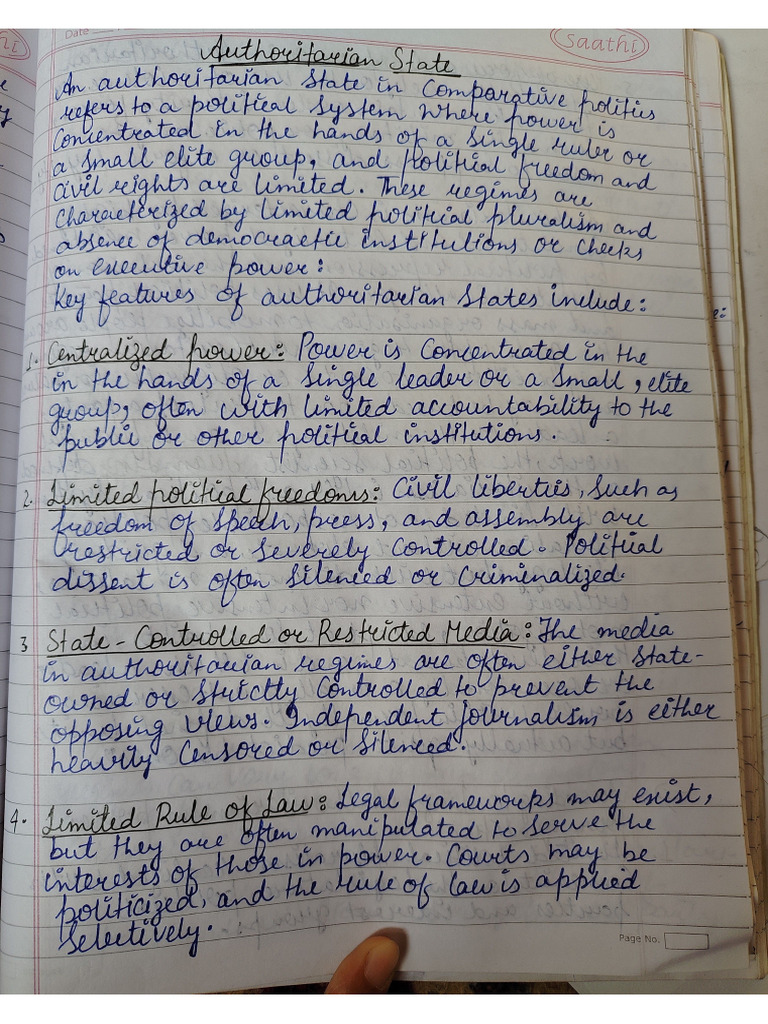 Date
Saathi
Authoritarian State
An authoritarian State in Comparative politics
refers to a political System where power is
Concentrated in the hands of a Single ruler or
a Small elite group, and political freedom and
civil rights are limited. These regimes are
Characterized by limited political pluralism and
absence of democraetic institutions or checks
on executive power:
Key features of authoritarian States include:
1. Centralized power: Power is Concentrated in the
in the hands of a Single leader or a Small, elite
group, often with limited accountability to the
public or other political institutions.
2. Limited political freedoms: Civil liberties, Such as
freedom of Speech, press, and assembly are
restricted or Severely Controlled. Political
dissent is often Silenced or Criminalized.
3 State-Controlled or Restricted Media: The media
in authoritarian regimes are often either State-
owned or Strictly Controlled to prevent the
opposing views. Independent journalism is either
heavily Censored or Silenced.
4. Limited Rule of Law: Legal frameworks may exist,
but they are often manipulated to Serve the
interests of those in power. Courts may be
politicized, and the rule of law is applied
Selectively.
Page No.